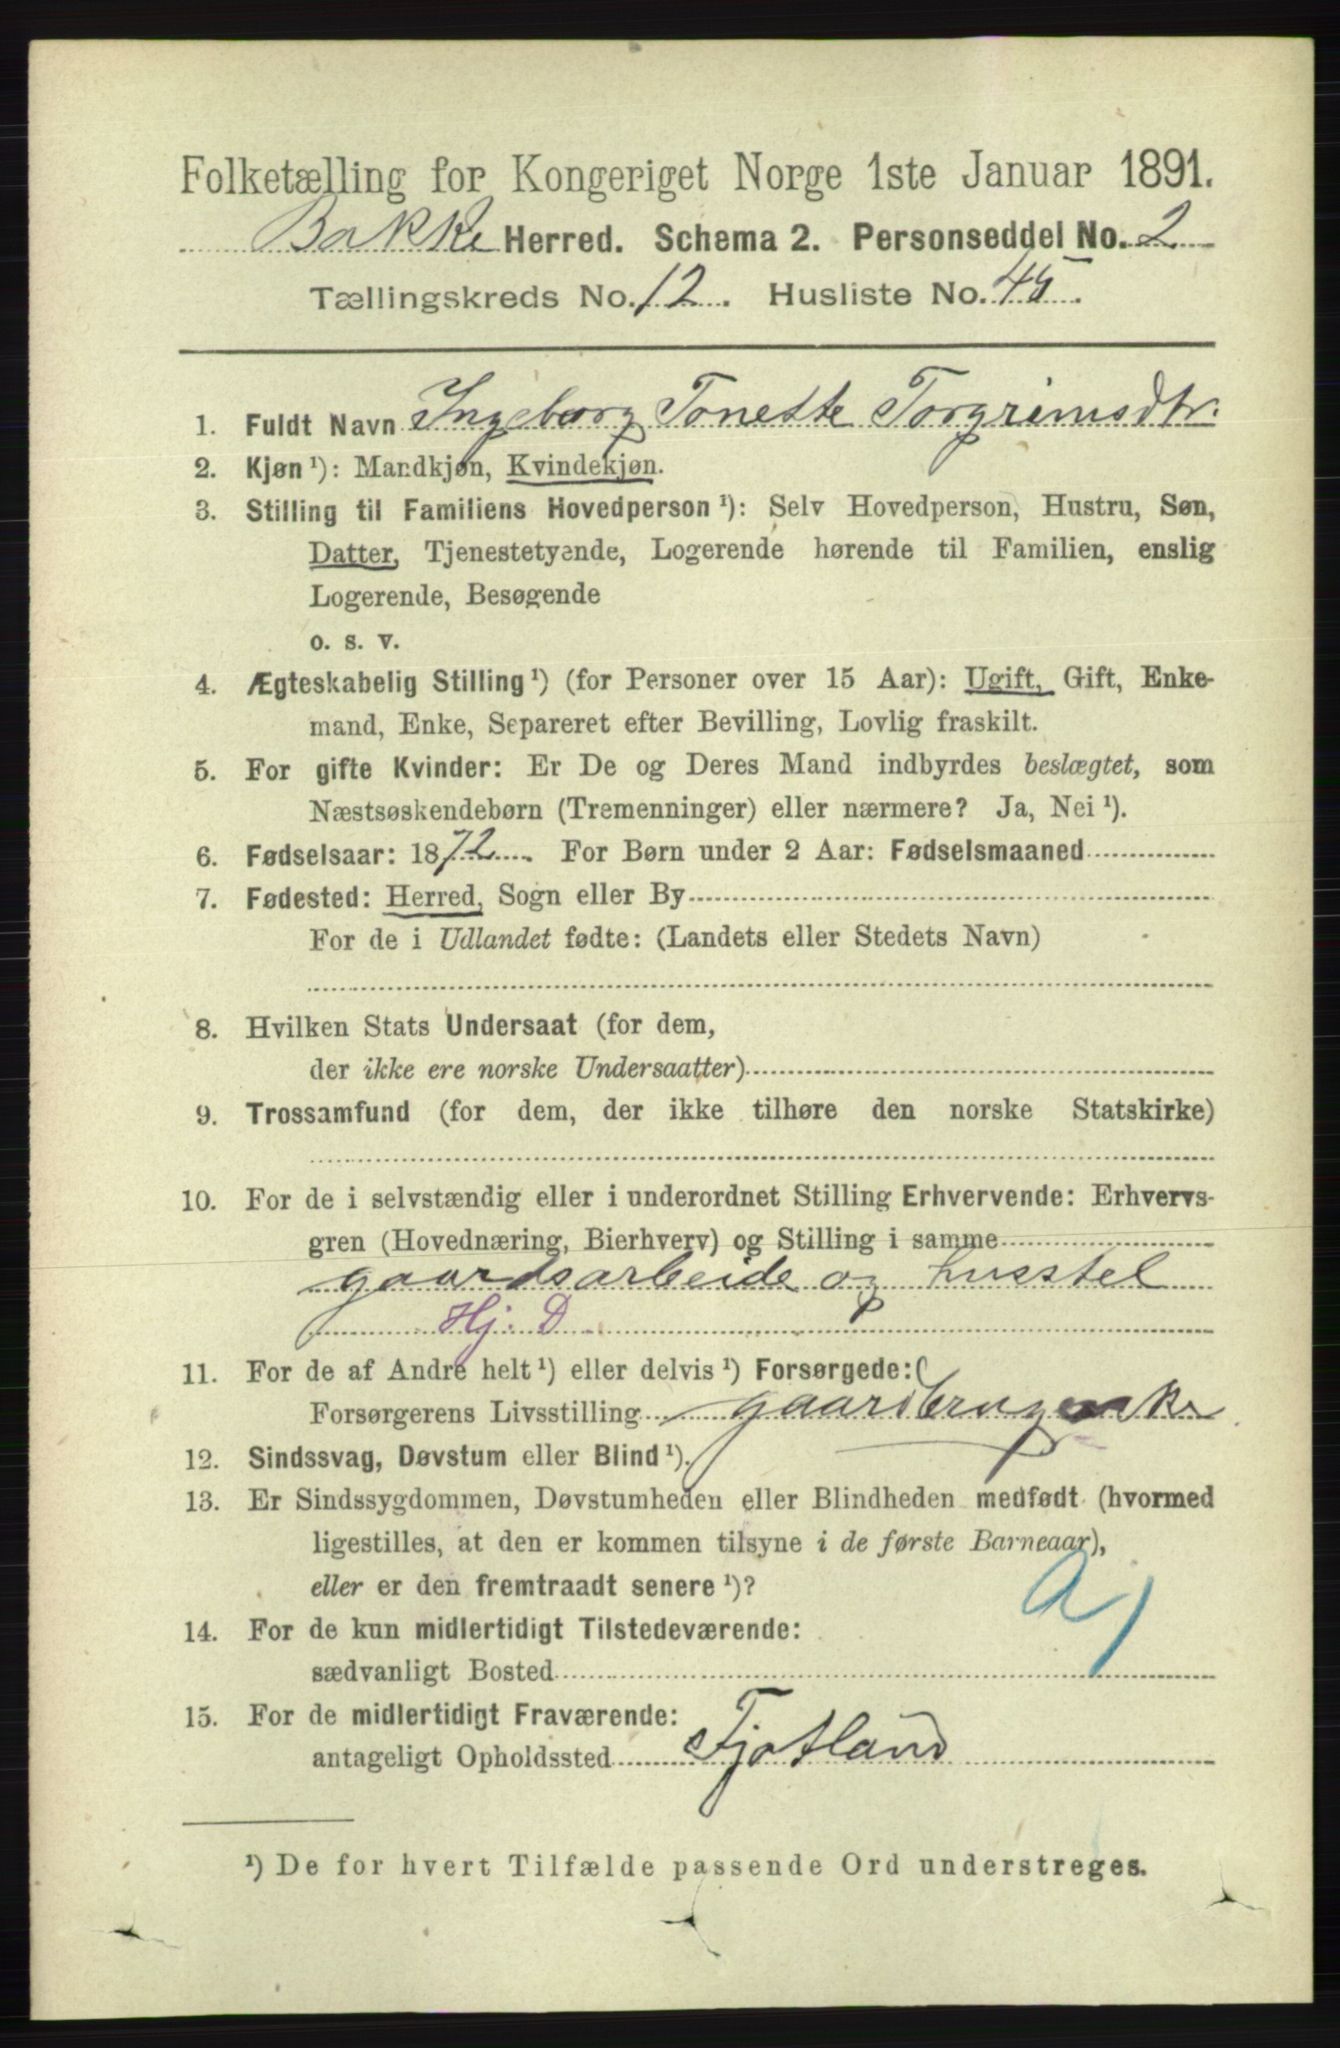 Folketælling for Kongeriget Norge 1ste Januar 1891.
Bakke Herred. Schema 2. Personseddel No. 2
Tællingskreds No. 12. Husliste No. 45.
1. Fuldt Navn Ingeborg Tonette Torgrimsdtr.
2. Kjøn ¹): Mandkjøn, Kvindekjøn.
3. Stilling til Familiens Hovedperson ¹): Selv Hovedperson, Hustru, Søn,
Datter, Tjenestetyende, Logerende hørende til Familien, enslig
Logerende, Besøgende
o. s. v.
4. Ægteskabelig Stilling ¹) (for Personer over 15 Aar): Ugift, Gift, Enke-
mand, Enke, Separeret efter Bevilling, Lovlig fraskilt.
5. For gifte Kvinder: Er De og Deres Mand indbyrdes beslægtet, som
Næstsøskendebørn (Tremenninger) eller nærmere? Ja, Nei ¹).
6. Fødselsaar: 1872. For Børn under 2 Aar: Fødselsmaaned
7. Fødested: Herred, Sogn eller By
For de i Udlandet fødte: (Landets eller Stedets Navn)
8. Hvilken Stats Undersaat (for dem,
der ikke ere norske Undersaatter)
9. Trossamfund (for dem, der ikke tilhøre den norske Statskirke)
10. For de i selvstændig eller i underordnet Stilling Erhvervende: Erhvervs-
gren (Hovednæring, Bierhverv) og Stilling i samme
gaardsarbeide og husstel
Hj. D
11. For de af Andre helt ¹) eller delvis ¹) Forsørgede:
Forsørgerens Livsstilling
12. Sindssvag, Døvstum eller Blind ¹).
13. Er Sindssygdommen, Døvstumheden eller Blindheden medfødt (hvormed
ligestilles, at den er kommen tilsyne i de første Barneaar),
eller er den fremtraadt senere ¹)?
14. For de kun midlertidigt Tilstedeværende:
sædvanligt Bosted
15. For de midlertidigt Fraværende:
antageligt Opholdssted Fjotland
¹) De for hvert Tilfælde passende Ord understreges.